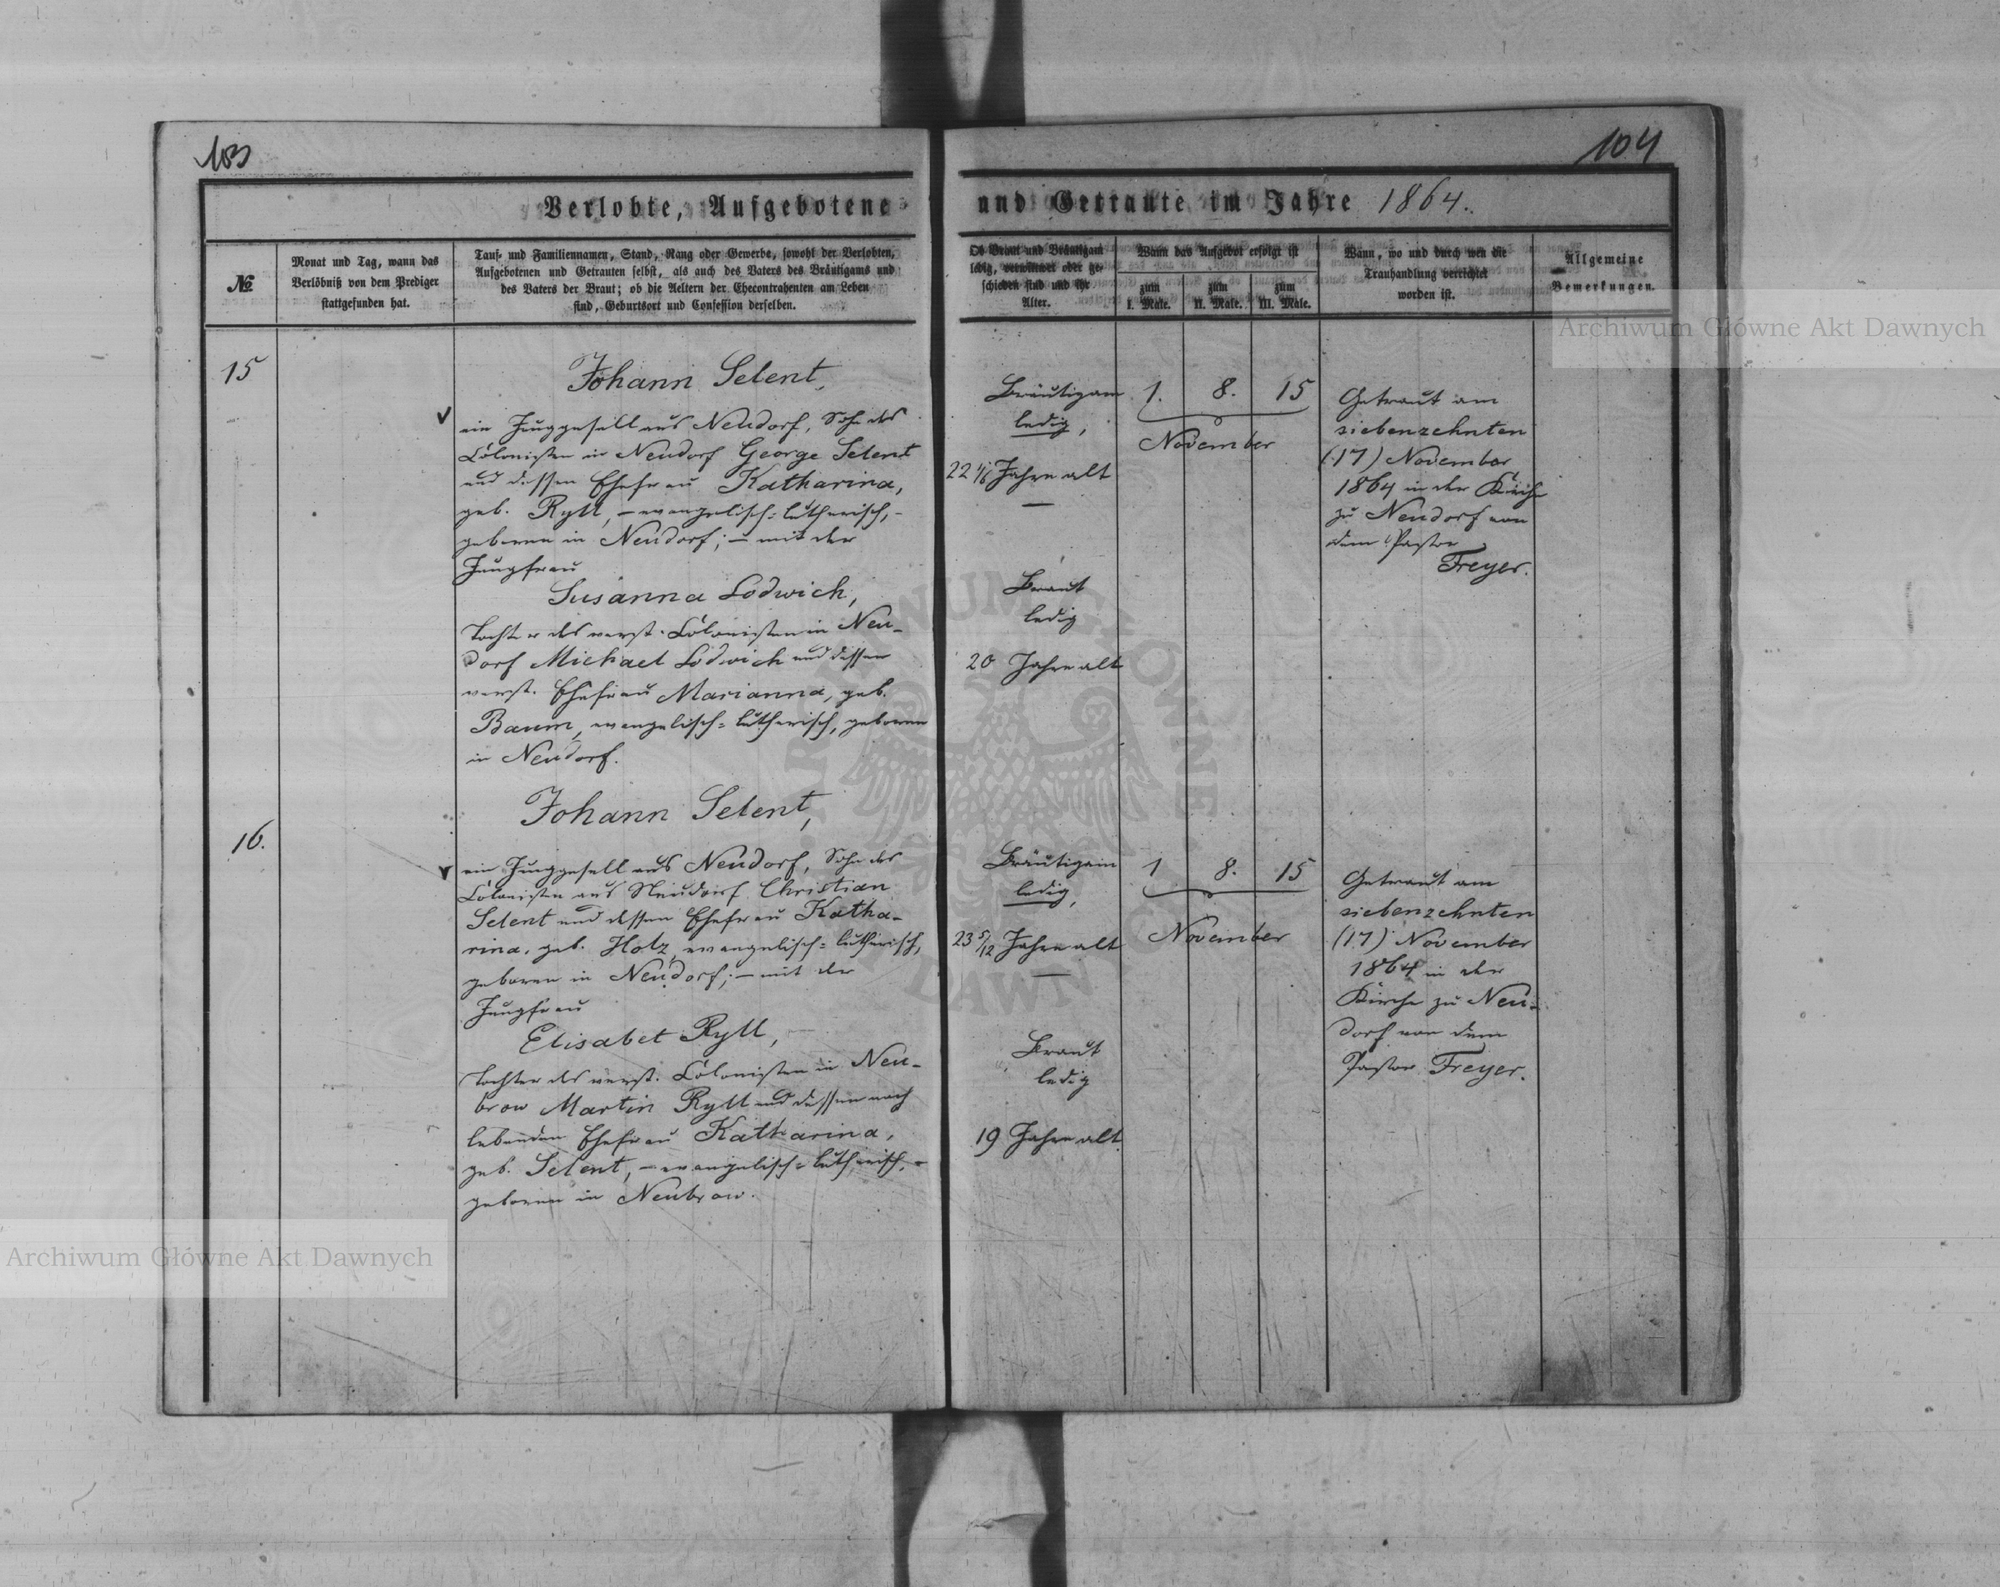 103
Verlobte, Aufgebotene
№
Monat und Tag, wann das
Verlöbniß von dem Prediger
stattgefunden hat.
Tauf- und Familiennamen, Stand, Rang oder Gewerbe, sowohl der Verlobten,
Aufgebotenen und Getrauten selbst, als auch des Vaters des Bräutigams und
des Vaters der Braut; ob die Aeltern der Ehecontrahenten am Leben
sind, Geburtsort und Confession derselben.
15
Johann Selent,
ein Junggesell aus Neudorf, Sohn des
Colonisten in Neudorf George Selent
und dessen Ehefrau Katharina,
geb. Ryll, – evangelisch-lutherisch, –
geboren in Neudorf; – mit der
Jungfrau
Susanna Lodwich,
Tochter des verst. Colonisten in Neu-
dorf Michael Lodwich und dessen
verst. Ehefrau Marianna, geb.
Baum, evangelisch-lutherisch, geboren
in Neudorf.
16.
Johann Selent,
ein Junggesell aus Neudorf, Sohn des
Colonisten aus Neudorf Christian
Selent und dessen Ehefrau Katha-
rina, geb. Holz, evangelisch-lutherisch,
geboren in Neudorf; – mit der
Jungfrau
Elisabet Ryll,
Tochter des verst. Colonisten in Neu-
brow Martin Ryll und dessen noch
lebenden Ehefrau Katharina,
geb. Selent, – evangelisch-lutherisch, –
geboren in Neubrow.
104
und Getraute im Jahre 1864.
Ob Braut und Bräutigam
ledig, verwittwet oder ge-
schieden sind und ihr
Alter.
Wann das Aufgebot erfolgt ist
zum
I. Male.
zum
II. Male.
zum
III. Male.
Wann, wo und durch wen die
Trauhandlung verrichtet
worden ist.
Allgemeine
Bemerkungen.
Bräutigam
ledig,
22 1/6 Jahre alt
Braut
ledig
20 Jahre alt
1. 8. 15
November
Getraut am
siebenzehnten
(17) November
1864 in der Kirche
zu Neudorf von
dem Pastor
Freyer.
Bräutigam
ledig,
23 5/12 Jahre alt
Braut
ledig
19 Jahre alt
1 8. 15
November
Getraut am
siebenzehnten
(17) November
1864 in der
Kirche zu Neu-
dorf von dem
Pastor Freyer.
Archiwum Główne Akt Dawnych
Archiwum Główne Akt Dawnych
ARCHIWUM GŁÓWNE AKT DAWNYCH